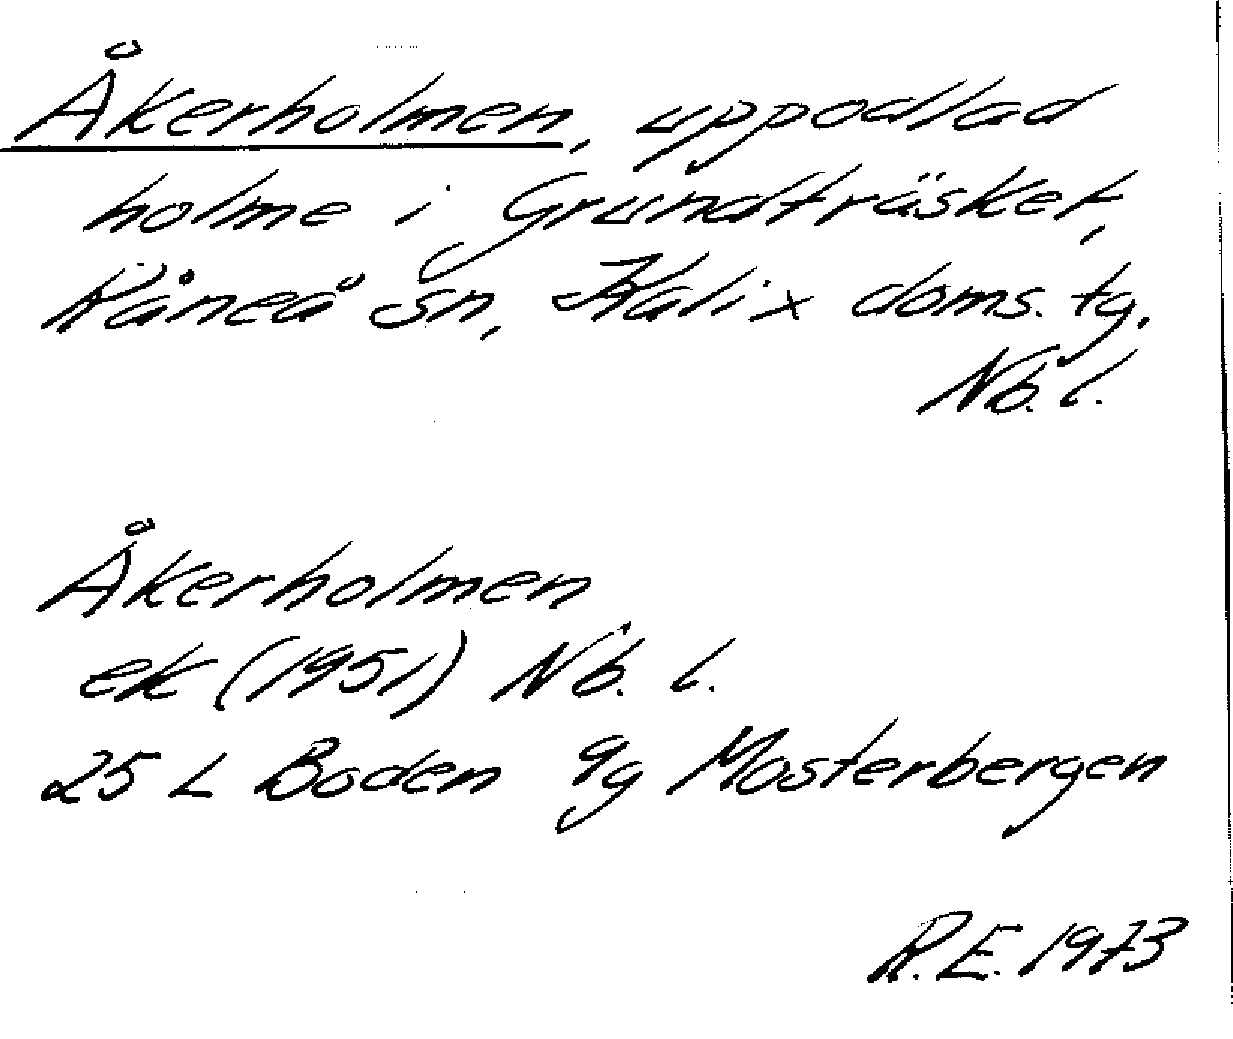 Åkerholmen, uppodlad
holme i Grundträsket,
Råneå sn, Kalix doms. tg.
Nb. l.
Åkerholmen
ek (1951) Nb. l.
25 L Boden 9g Mosterbergen
R.E. 1973